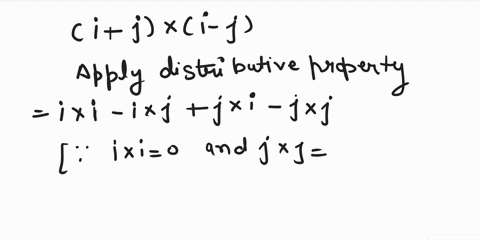 (i+j)×(i-j)
Apply distributive property
= i×i - i×j + j×i - j×j
[∵ i×i=0 and j×j=